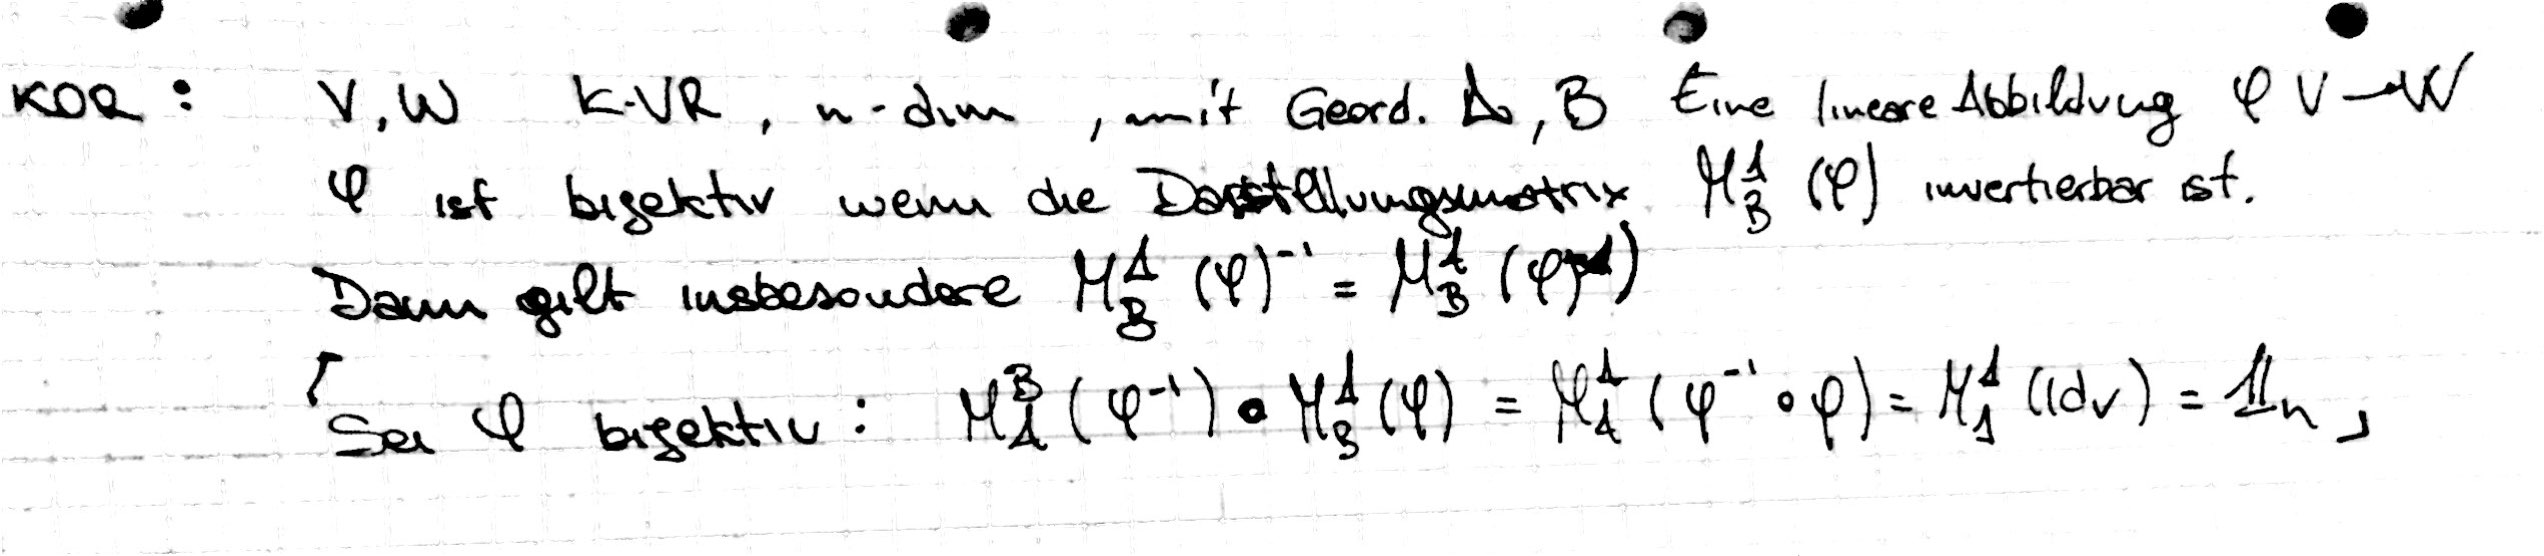 KOR: V, W K-VR, n-dim, mit Geord. A, B Eine lineare Abbildung φ V → W
φ ist bijektiv wenn die Darstellungsmatrix M^A_B (φ) invertierbar ist.
Dann gilt insbesondere M^A_B (φ)^-1 = M^A_B (φ^-1)
Sei φ bijektiv: M^B_A (φ^-1) • M^A_B (φ) = M^A_A (φ^-1 ∘ φ) = M^A_A (idv) = 𝟙n